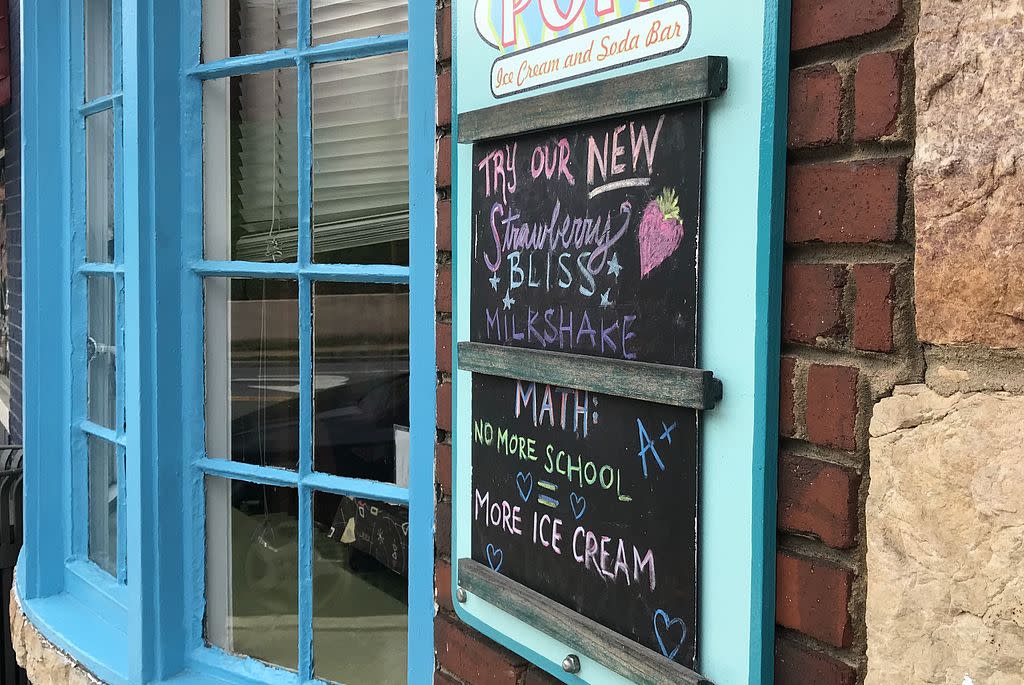 POP
Ice Cream and Soda Bar
TRY OUR NEW
Strawberry
BLISS
MILKSHAKE
MATH:
A+
NO MORE SCHOOL
=
MORE ICE CREAM